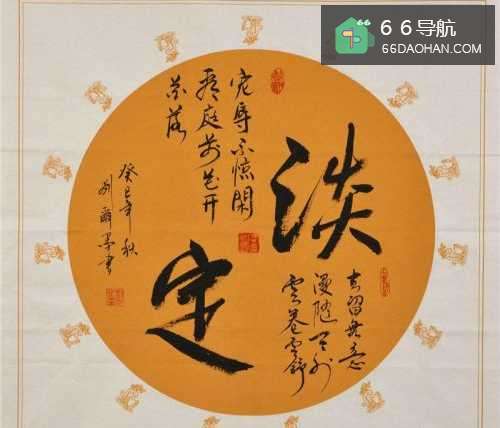 66导航
66DAOHAN.COM
淡
定
宠辱不惊閑
看庭前花开
花落
去留無意
漫隨天外
雲卷雲舒
癸巳年秋